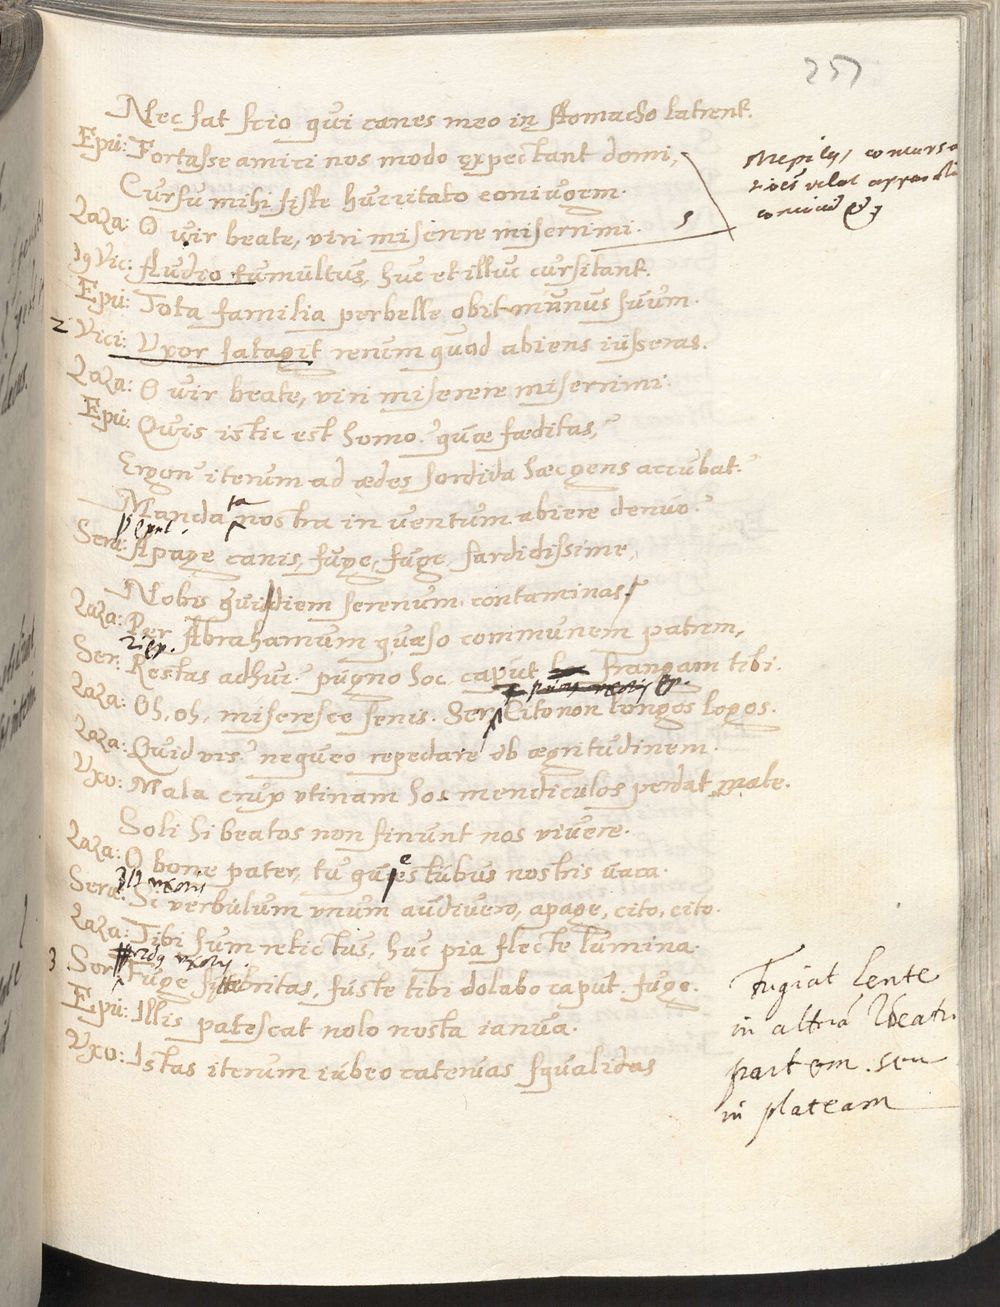 257
Nec sat scio qui canes meo in stomacho latrent.
Epu: Fortasse amici nos modo expectant domi,
Cursu mihi siste huc citato coniugem.
Laza: O vir beate, viri miserere miserrimi. 5
Vic: Audio tumultus, huc et illuc cursitant.
Epu: Tota familia perbelle obit munus suum.
2 Vici: Uxor satagit rerum quod abiens iusseras.
Laza: O vir beate, viri miserere miserrimi.
Epu: Quis istic est homo? quae faeditas,
Ergon iterum ad aedes sordida haec gens accubat?
Mandata nostra in ventum abiere denuo?
Seru: Apage canis, fuge, fuge, sordidissime,
Nobis qui diem serenum contaminas.
Laza: Per Abrahamum quaeso communem patrem,
Ser: Restas adhuc? pugno hoc caput frangam tibi.
Laza: Oh, oh, miseresce senis. Ser: Cito non longos logos.
Laza: Quid vis? nequeo repedare ob aegritudinem.
Uxo: Mala crux utinam hos mendiculos perdat male.
Soli hi beatos non sinunt nos vivere.
Laza: O bone pater, tu questubus nostris vaca.
3us uxoris
Seru: Si verbulum unum audivero, apage, cito, cito.
Laza: Tibi sum relictus, huc pia flecte lumina.
3 Ser: Fuge fuste tibi dolabo caput. fuge.
Epu: Illis patescat nolo nosta ianua.
Uxo: Istas iterum iubeo catervas squalidas
Fugiat lente
in alterã theatri
partem. seu
in plateam